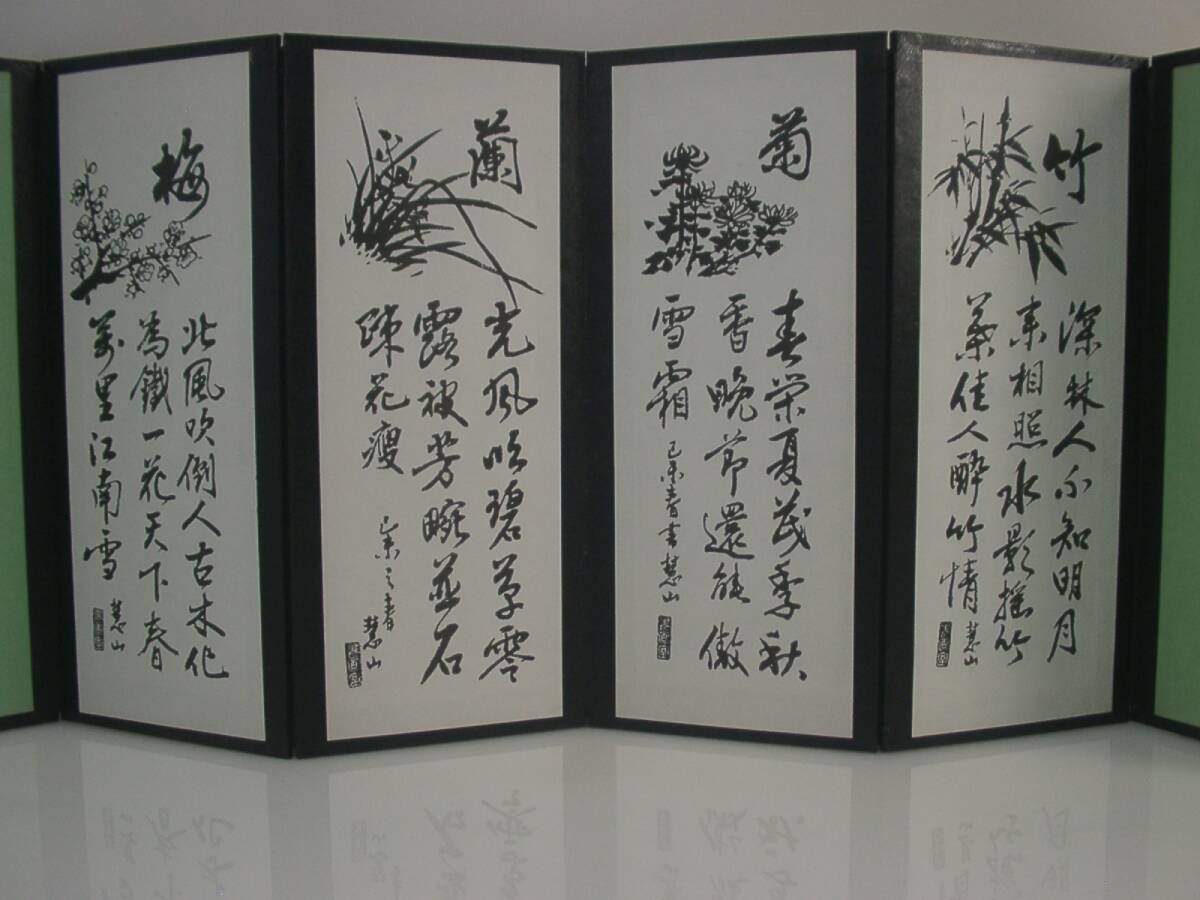 梅
北風吹倒人古木化
為鐵一花天下春
萬里江南雪 慧山
蘭
光風吹碧草零
露被芳畹並石
疎花瘦
己未之春 慧山
菊
春榮夏茂季秋
香晩節還能傲
雪霜 己未春書慧山
竹
深林人不知明月
来相照水影搖竹
葉佳人醉竹情 慧山